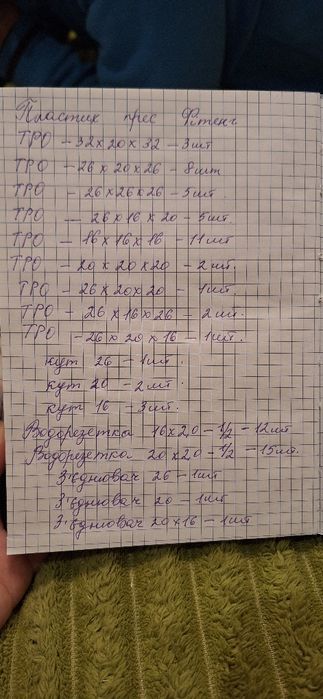 Пластик прес Фітенг
ТРО - 32x20x32 - 3шт
ТРО - 26x20x26 - 8шт
ТРО - 26x26x26 - 5шт
ТРО - 26x16x20 - 5шт
ТРО - 16x16x16 - 11шт
ТРО - 20x20x20 - 2шт.
ТРО - 26x20x20 - 1шт
ТРО - 26x16x26 - 2шт.
ТРО - 26x20x16 - 1шт.
кут 26 - 1шт.
кут 20 - 2шт.
кут 16 - 3шт.
Водорезетка 16x2,0 - 1/2 - 12шт
Водорезетка 20x2,0 - 1/2 - 15шт.
З'єднювач 26 - 1шт
З'єднювач 20 - 1шт
З'єднювач 20x16 - 1шт